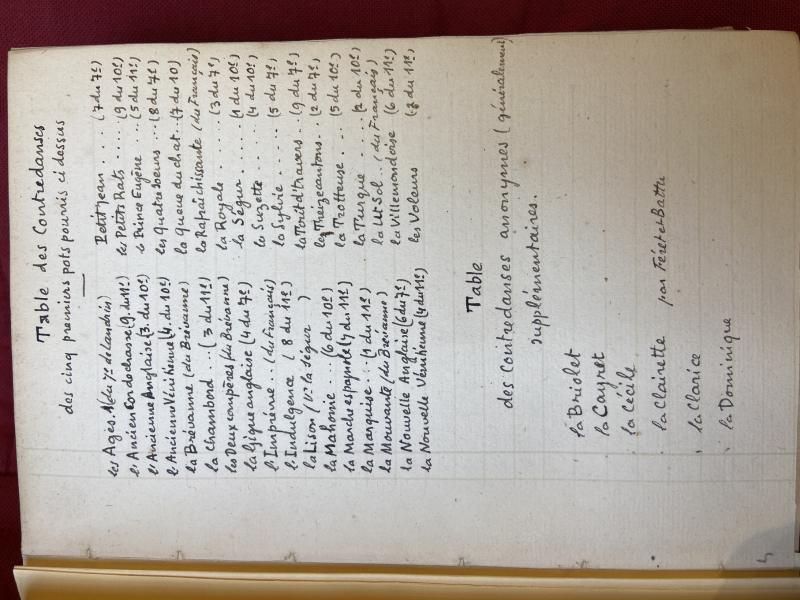 Table des Contredanses
des cinq premiers pots pourris ci dessus
les Ages. (1 du 7e de Landrin)
l'Ancien Cor de chasse (9. du 11e)
l'Ancienne Anglaise (3. du 10e)
l'Ancienne Vénitienne (4. du 10e)
la Brévanne (du Brévanne)
la Chambord .. (3 du 11e)
les Deux compères (du Brévanne)
la Gigue anglaise (4 du 7e)
l'Imprémé .. (du Français)
l'Indulgence (8 du 11e)
la Lison (V: la Ségur)
la Mahonie ... (6 du 10e)
la Marche espagnole (7 du 11e)
la Marquise ... (1 du 11e)
la Mouvante (du Brévanne)
la Nouvelle Anglaise (6 du 7e)
la Nouvelle Vénitienne (4 du 11e)
Petit Jean .... (7 du 7e)
les Petits Rats ..... (9 du 10e)
le Prince Eugène ... (5 du 11e)
les Quatre Soeurs ... (8 du 7e)
la Queue du chat .. (7 du 10)
la Rafraîchissante (du Français)
la Royale ..... (3 du 7e)
la Ségur ..... (1 du 10e)
la Suzette ..... (4 du 10e)
la Sylvie ..... (5 du 7e)
la Tort et travers .. (9 du 7e)
les Treize cantons .. (2 du 7e)
la Trotteuse .... (5 du 10e)
la Turquie .... (2 du 10e)
la Ut Sol .. (du Français)
la Villemondoise (6 du 11e)
les Voleurs (2 du 11e)
Table
des Contredanses anonymes (généralement)
supplémentaires.
la Briolet
la Cayret
la Cécile
la Clairette par Féret et Battu
la Clarice
la Dominique